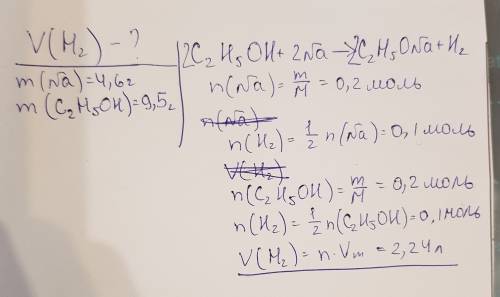 V(H₂) - ?
m(Na)=4,6г
m(C₂H₅OH)=9,5г
2C₂H₅OH + 2Na → 2C₂H₅ONa + H₂
n(Na) = m/M = 0,2 моль
n(Na)
n(H₂) = 1/2 n(Na) = 0,1 моль
V(H₂)
n(C₂H₅OH) = m/M = 0,2 моль
n(H₂) = 1/2 n(C₂H₅OH) = 0,1 моль
V(H₂) = n · Vm = 2,24 л